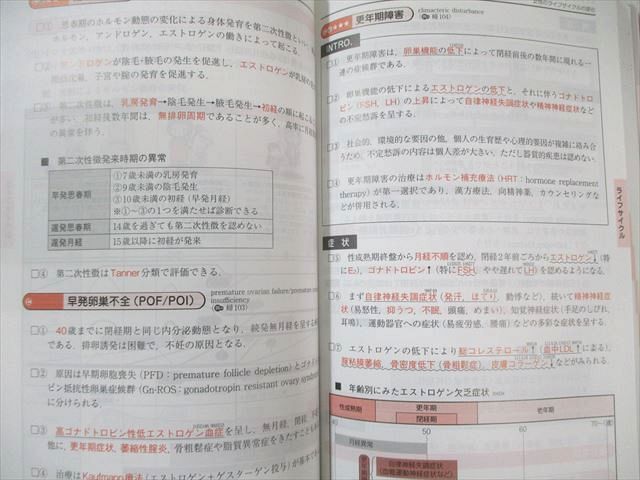 思春期のホルモン動態の変化による身体発育を第二次性徴といい
ルモン、アンドロゲン、エストロゲンの働きによって起こる.
アンドロゲンが陰毛・腋毛の発生を促進し、エストロゲンが乳房の
子宮や腟の発育を促進する.
第二次性徴は、乳房発育→陰毛発生→腋毛発生→初経の順に起こる
が多い. 初経後数年間は、無排卵周期であることが多く、高率に月経
の異常を伴う.
■ 第二次性徴発来時期の異常
早発思春期
①7歳未満の乳房発育
②9歳未満の陰毛発生
③10歳未満の初経（早発月経）
※①～③の1つを満たせば診断できる
遅発思春期 14歳を過ぎても第二次性徴を認めない
遅発月経 15歳以降に初経が発来
□④ 第二次性徴はTanner分類で評価できる.
早発卵巣不全（POF/POI）
premature ovarian failure/premature
insufficiency
(婦103)
□① 40歳までに閉経期と同じ内分泌動態となり、続発無月経を呈する
である. 排卵誘発は困難で、不妊の原因となる.
□② 原因は早期卵胞喪失（PFD：premature follicle depletion）とゴナド
ピン抵抗性卵巣症候群（Gn-ROS：gonadotropin resistant ovary
に分けられる.
□③ 高ゴナドトロピン性低エストロゲン血症を呈し、無月経、閉経、不
他に、更年期症状、萎縮性腟炎、骨粗鬆症や脂質異常症をきたすことも
□④ 治療はKaufmann療法（エストロゲン＋ゲスターゲン投与）が基本で
女性のライフサイクルの変化
★★★ 更年期障害
climacteric disturbance
(婦104)
INTRO.
□① 更年期障害は、卵巣機能の低下によって閉経前後の数年間に現れる一
連の症候群である.
□② 卵巣機能の低下によるエストロゲンの低下と、それに伴うゴナドトロ
ピン（FSH、LH）の上昇によって自律神経失調症状や精神神経症状など
の不定愁訴を呈する.
□③ 社会的、環境的な要因の他、個人の生育歴や心理的要因が複雑に絡み合
うため、不定愁訴の内容は個人差が大きい. ただし器質的疾患は認めない.
□④ 更年期障害の治療はホルモン補充療法（HRT：hormone replacement
therapy）が第一選択であり、漢方療法、向精神薬、カウンセリングな
どが併用される.
症 状
□⑤ 性成熟期終盤から月経不順を認め、閉経2年前ごろからエストロゲン↓（特
にE₂）、ゴナドトロピン↑（特にFSH、やや遅れてLH）を認めるようになる.
□⑥ まず自律神経失調症状（発汗、ほてり、動悸など）、続いて精神神経症
状（易怒性、抑うつ、不眠、頭痛、めまい）、知覚神経症状（手足のしびれ、
耳鳴）、運動器官への症状（易疲労感、腰痛）などの多彩な症状を呈する.
□⑦ エストロゲンの低下により総コレステロール↑（血中LDL↑による）、
尿粘膜萎縮、骨密度低下（骨粗鬆症）、皮膚コラーゲン↓などがみられる.
■ 年齢別にみたエストロゲン欠乏症状
性成熟期 更年期 老年期
閉経期
(40) 50 60 70～(歳)
月経異常
自律神経失調症状
（血管運動神経症状など）
ライフサイクル